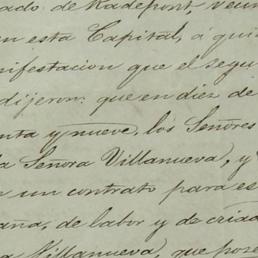 ado de Radepont, vecin
en esta Capital, á qui
nifestacion que el segu
dijeron: que en diez de
nta y nueve, los Señores
la Señora Villanueva, y
n un contrato para es
aña, de labor y de criad
a Villanueva, que pose